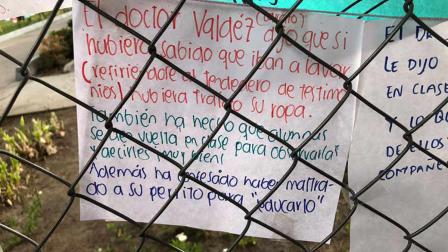 El doctor Valdéz (Camilo) dijo que si
hubiera sabido que iban a lavar
(refiriendose al tendedero de testimo
nios) hubiera traido su ropa.
También ha hecho que alumnas
se den vuelta en clase para observarlas
y decirles ¡muy bien!
Además ha expresado haber maltra-
do a su perrito para "educarlo"
EL DR
LE DIJO
EN CLASE
Y LO
DE ELLOS
COMPAÑE